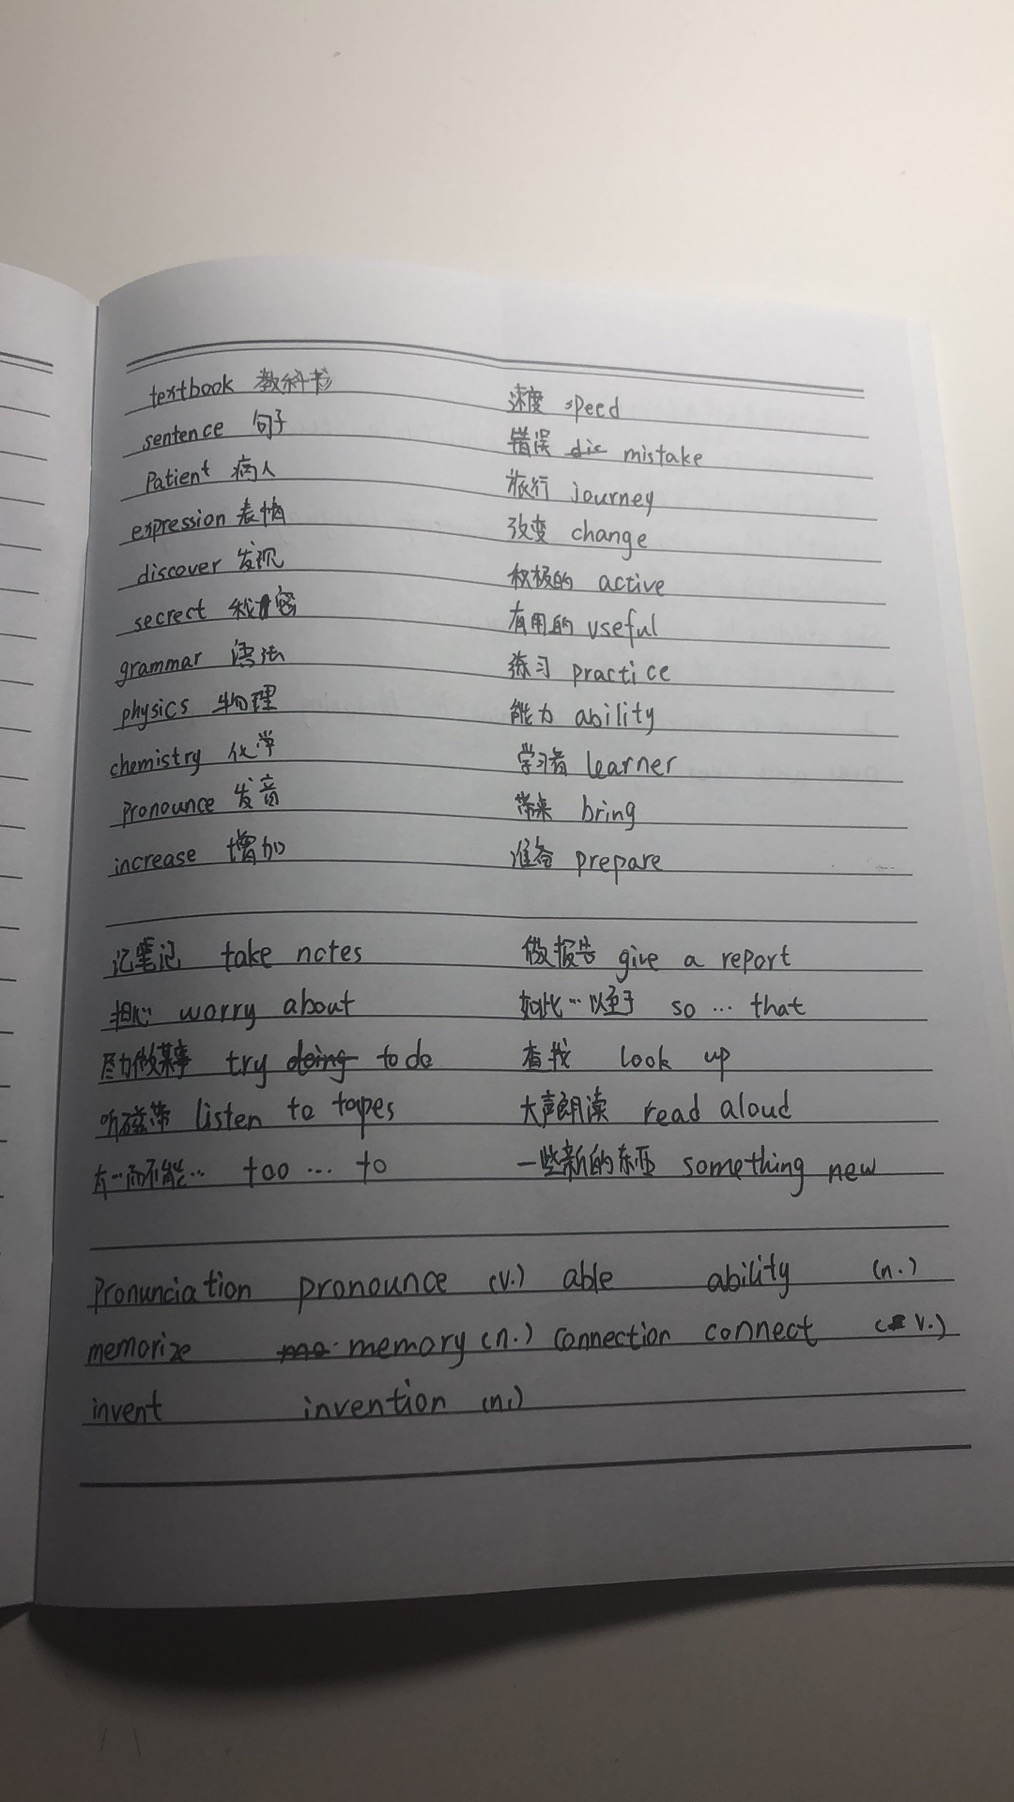 textbook 教科书 速度 speed
sentence 句子 错误 dic mistake
Patient 病人 旅行 journey
expression 表情 改变 change
discover 发现 积极的 active
secrect 秘密 有用的 useful
grammar 语法 练习 practice
physics 物理 能力 ability
chemistry 化学 学习者 learner
pronounce 发音 带来 bring
increase 增加 准备 prepare
记笔记 take notes 做报告 give a report
担心 worry about 如此…以至于 so … that
尽力做某事 try doing to do 查找 look up
听磁带 listen to tapes 大声朗读 read aloud
太…而不能… too … to 一些新的东西 something new
Pronunciation pronounce (v.) able ability (n.)
memorize me memory (n.) connection connect (v.)
invent invention (n.)